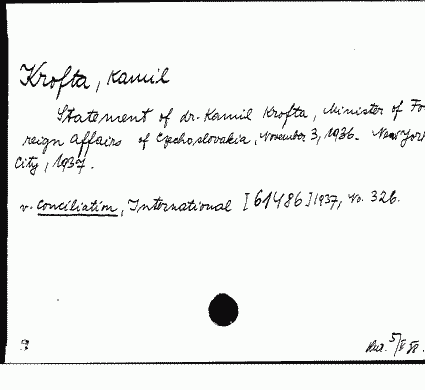 Krofta, Kamil
Statement of dr. Kamil Krofta, Minister of Fo-
reign Affairs of Czechoslovakia, November 3, 1936. New York
City, 1937.
v. Conciliation, International [61486] 1937, No. 326.